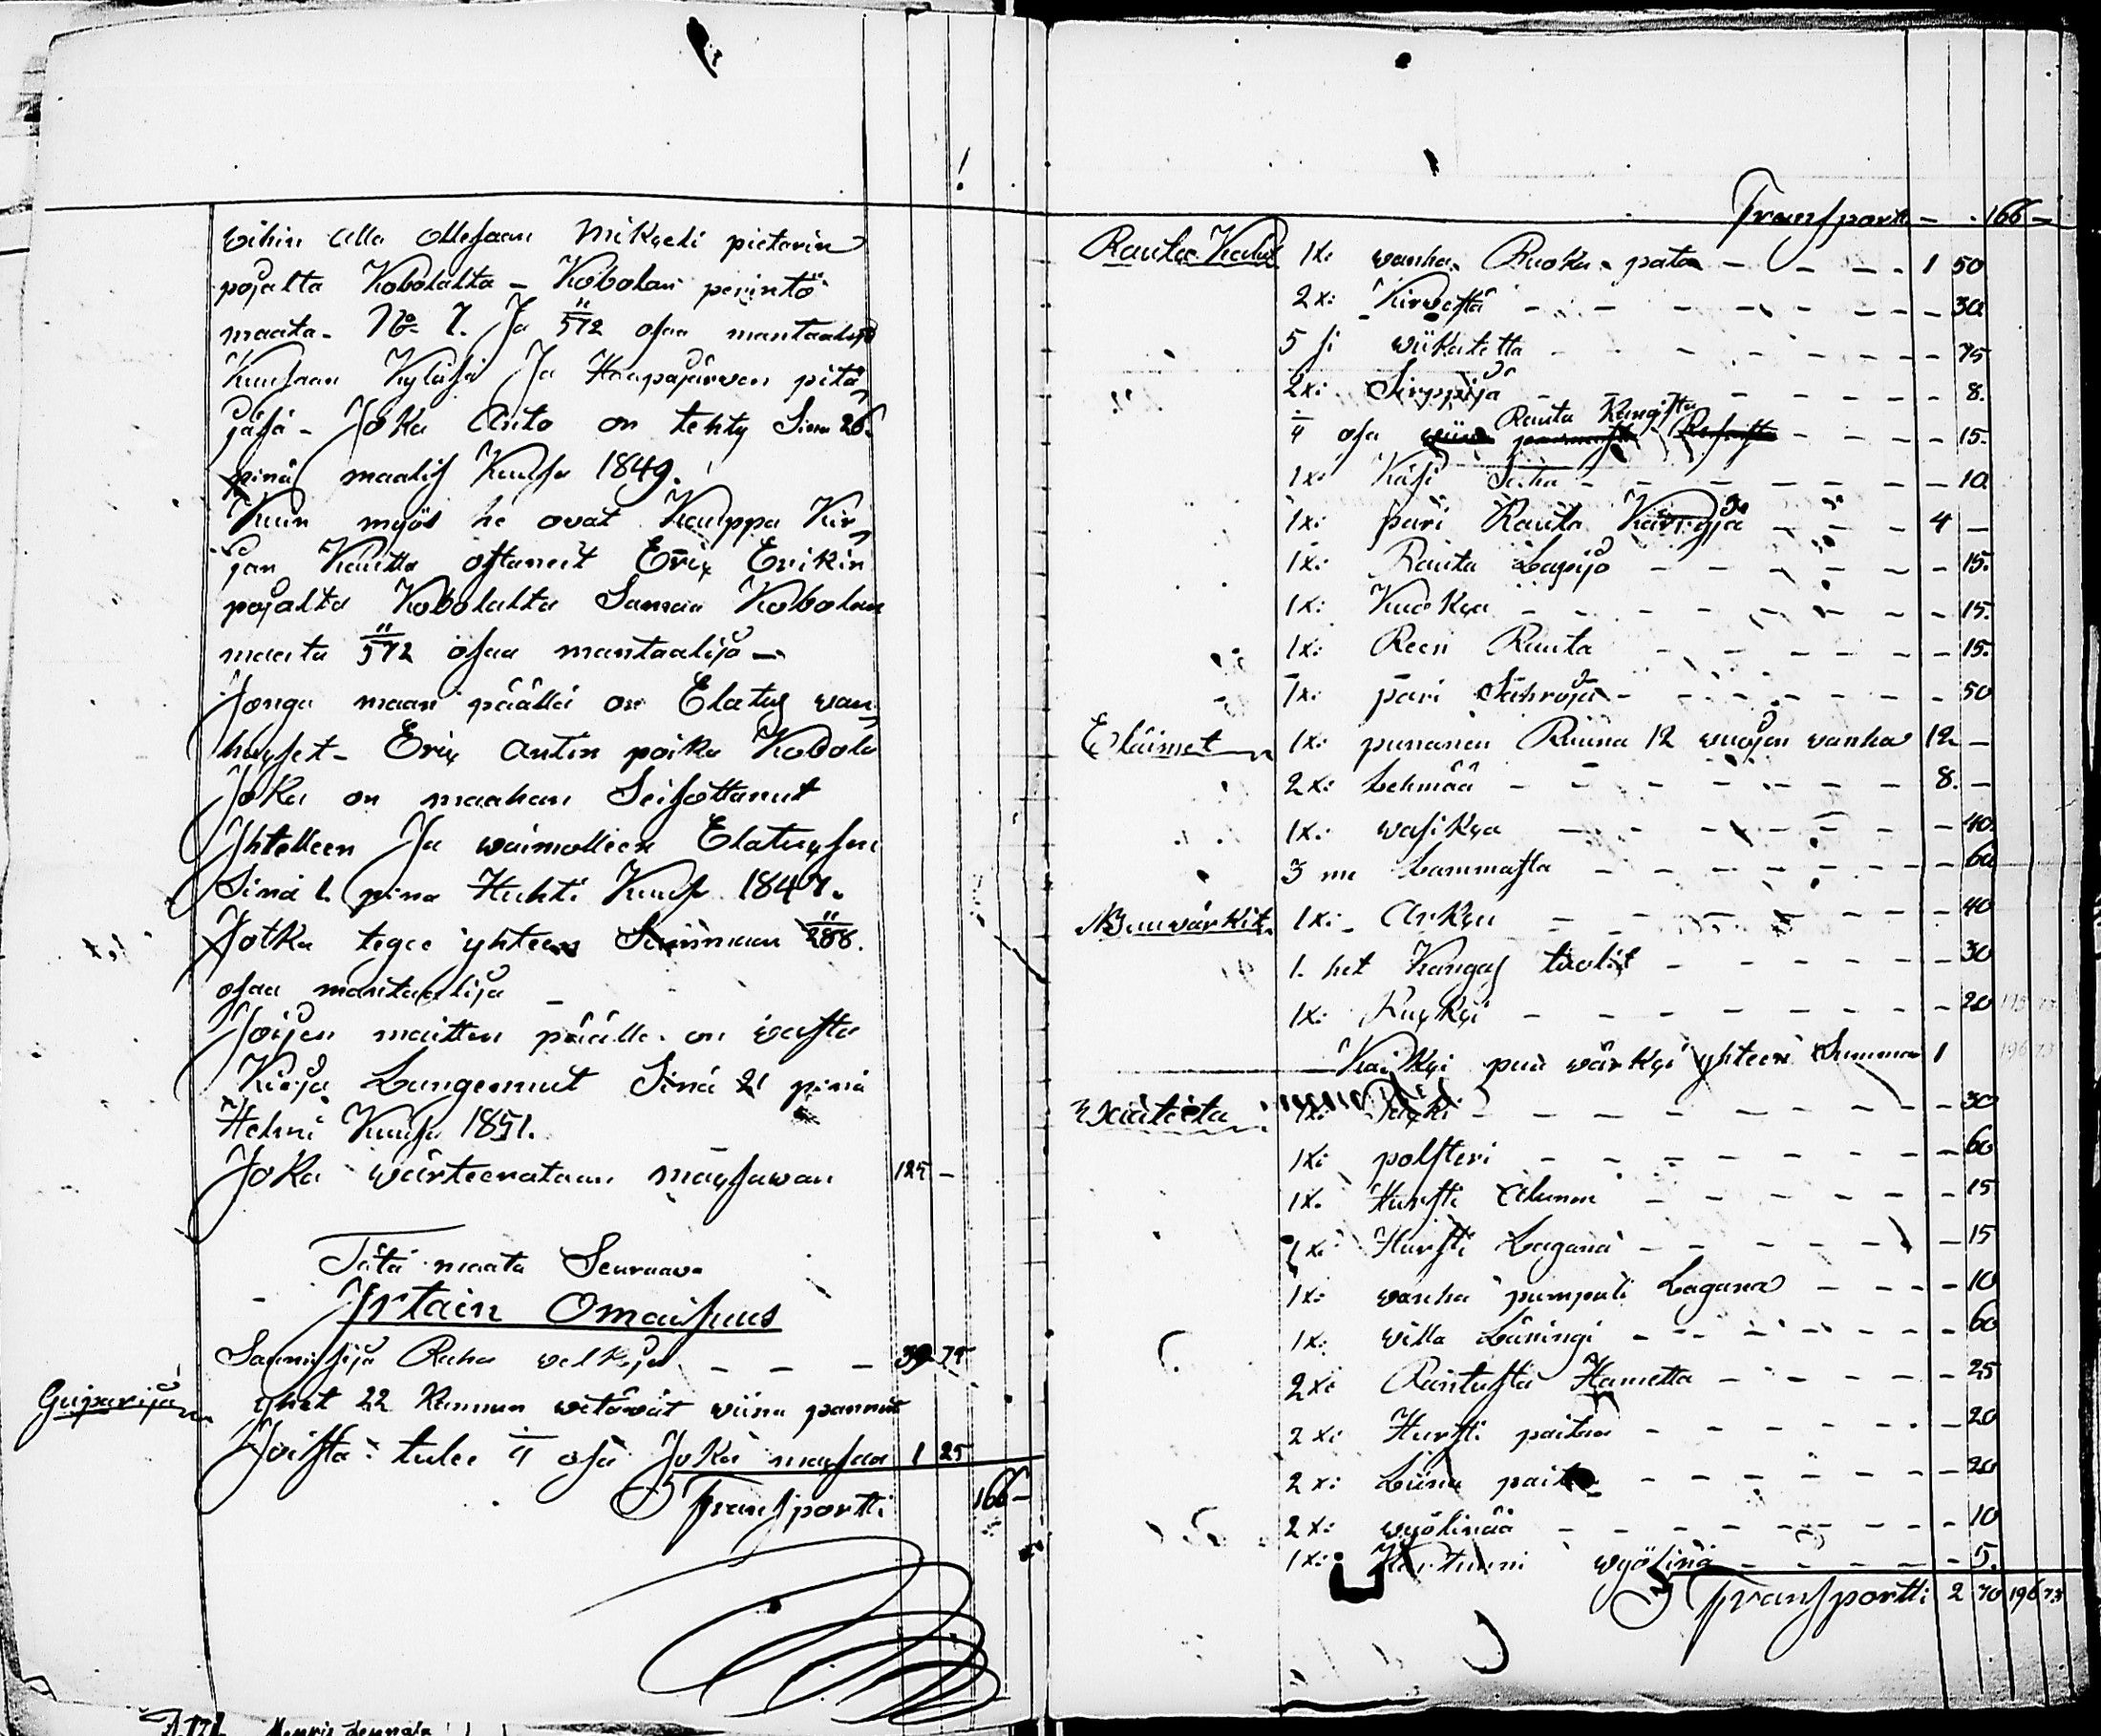 wihin alla ollessaan Mikaeli pietarin
pojalta Kobolalta - Kobolan perintö
maata - No 7. Ja 11/572 osaa mantaalija
Kuusaan Kylässä Ja Haapajärwen pitä,
jäsä - Joka Auto on tehty Sinä 26.
pinä maalis Kuussa 1849.
Kuin myös he ovat Kauppa Kir,
jan Kautta ostaneet Erix Erikin
pojalta Kobolalta Saman Kobolan
maata 11/572 osaa mantaalija -
Jonga maan päällä on Elatus wan,
huxset - Erix Antin poika Kobola
Joka on maahan Seisottanut
Ihtelleen Ja waimolleen Elatuxsen
Sinä 1 pinä Huhti Kuus 1847.
Jotka tegee yhteen Summaan 11/288.
osaa mantaalija -
Joijen maitten päälle on wasta
Kirja Langennut Sinä 21 pinä
Helmi Kuusa 1851.
Joka wärteerataan maxsawan 125 -
Tätä maata Seuraawa
Irtain Omaisuus
Saamisija Raha welkoja - - - 39 75
yhet 22 Kannun wetäwät wiina pannut
Joista tulee 1/4 osa Joka maxsaa 1 25
Transportti 166 -
Transportti - 166 -
Rauta Kalut 1xi wanha Ruoka pata - 1 50
2xi Kirwestä - 30
5 si wiikatetta - 75
2xi Sirppijä - 8.
Rauta Kangista
1/4 osa - 15.
1xi Käsi Saha - 10
1xi pari Rauta - 4 -
1xi Rauta Lapijo - 15.
1xi Kuokka - 15.
1xi Reen Rauta - 15.
1xi pari Sahroja - 50
Eläimet 1xi punanen Ruuna 12 wuojen wanha 12 -
2xi Lehmää - 8. -
1xi wasikka - 40.
3 me Lammasta - 60
Puuwärkit 1xi Arkku - 40
1. het Kangas tuolit - 30
1xi - 20
Kaikki puu wärkki yhteen Summa 1
Waateita 1xi - 30
1xi polsteri - 60
1xi Hursti Alunen - 15
1xi Hursti Lagana - 15
1xi wanha pumpuli Lagana - 10
1xi willa Läningi - 60
2xi Rantusta Hametta - 25
2xi Hursti paitaa - 20
2xi Liina paitaa - 20
2xi wyölinää - 10
1xi Kartuuni wyölinä - 5.
Transportti 2 70 196 73